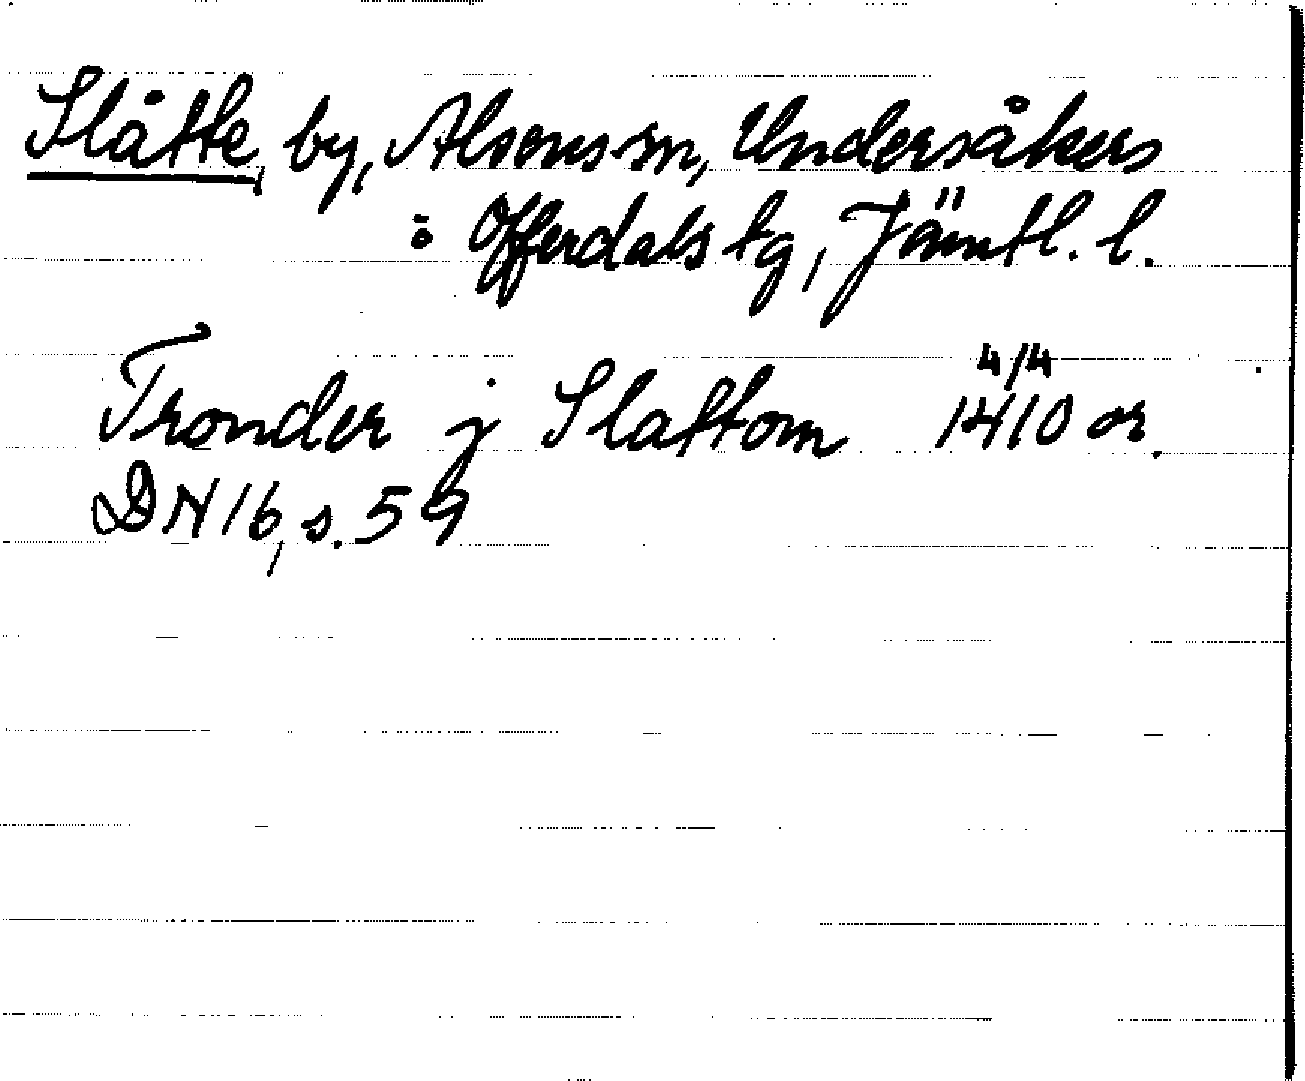 Slåtte, by, Alsens sn, Undersåkers
o Offerdals tg, Jämtl. l.
Tronder j Slattom 4/4 1410 or.
DN 16, s. 59